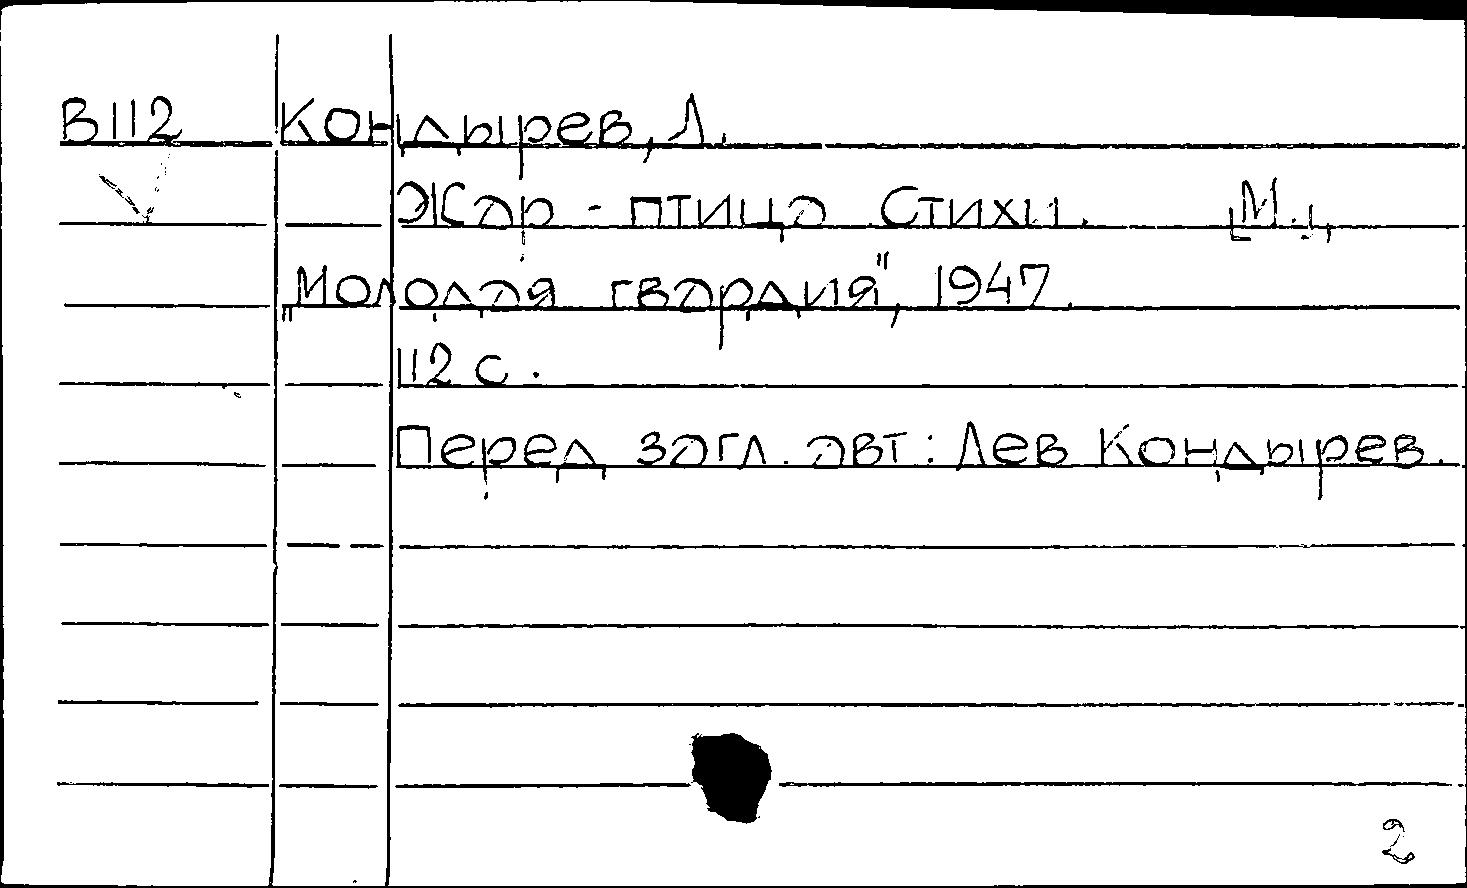 В112 Кондырев, Л.
Жар-птица Стихи. [М.],
„Молодая гвардия", 1947.
112 с.
Перед загл. авт: Лев Кондырев.
2